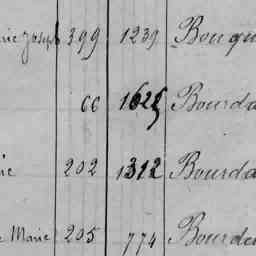 Joseph 399 1239 Bouqu
66 1625 Bourda
202 1312 Bourda
Marie 205 774 Bourde